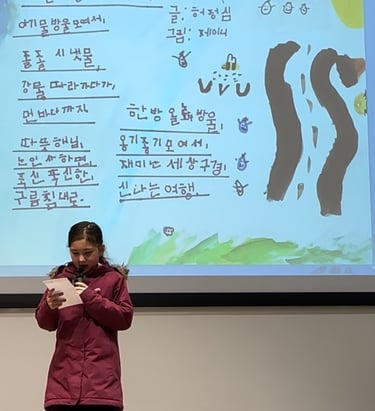 글: 허정심
그림: 제미니
여기 물방울 모여서,
졸졸 시냇물,
강물 따라가다가,
먼 바다까지.
따뜻 해님,
노인사 하면,
푹신 푹신한,
구름침대로.
한 방울 두 방울,
옹기종기 모여서,
재미난 세상 구경,
신나는 여행.